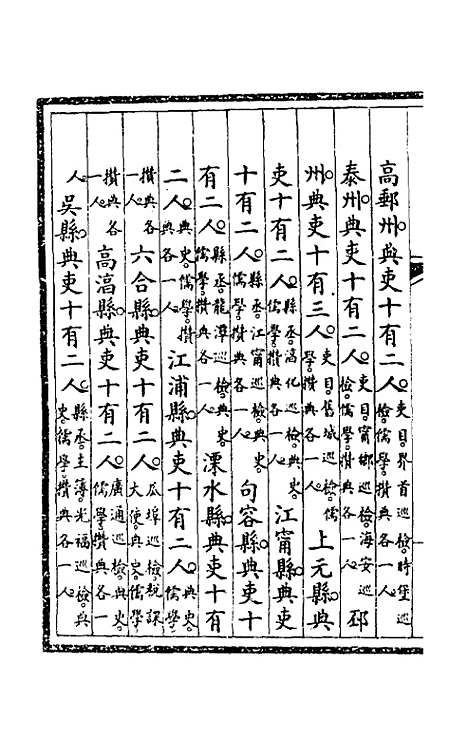 高郵州典吏十有二人吏目界首巡檢時堡巡檢儒學攢典各一人
泰州典吏十有二人吏目甯鄉巡檢海安巡檢儒學攢典各一人邳
州典吏十有三人吏目舊城巡檢儒學攢典各一人上元縣典
吏十有二人縣丞淳化巡檢典史儒學攢典各一人江甯縣典吏
十有二人縣丞江甯巡檢典史儒學攢典各一人句容縣典吏十
有二人縣丞龍潭巡檢典史儒學攢典各一人溧水縣典吏十有
二人典史儒學攢典各一人江浦縣典吏十有二人典史儒學
攢典各一人六合縣典吏十有二人瓜埠巡檢稅課大使典史儒學
攢典各一人高淳縣典吏十有二人廣通巡檢典史儒學攢典各一
人吳縣典吏十有二人縣丞主簿光福巡檢典史儒學攢典各一人